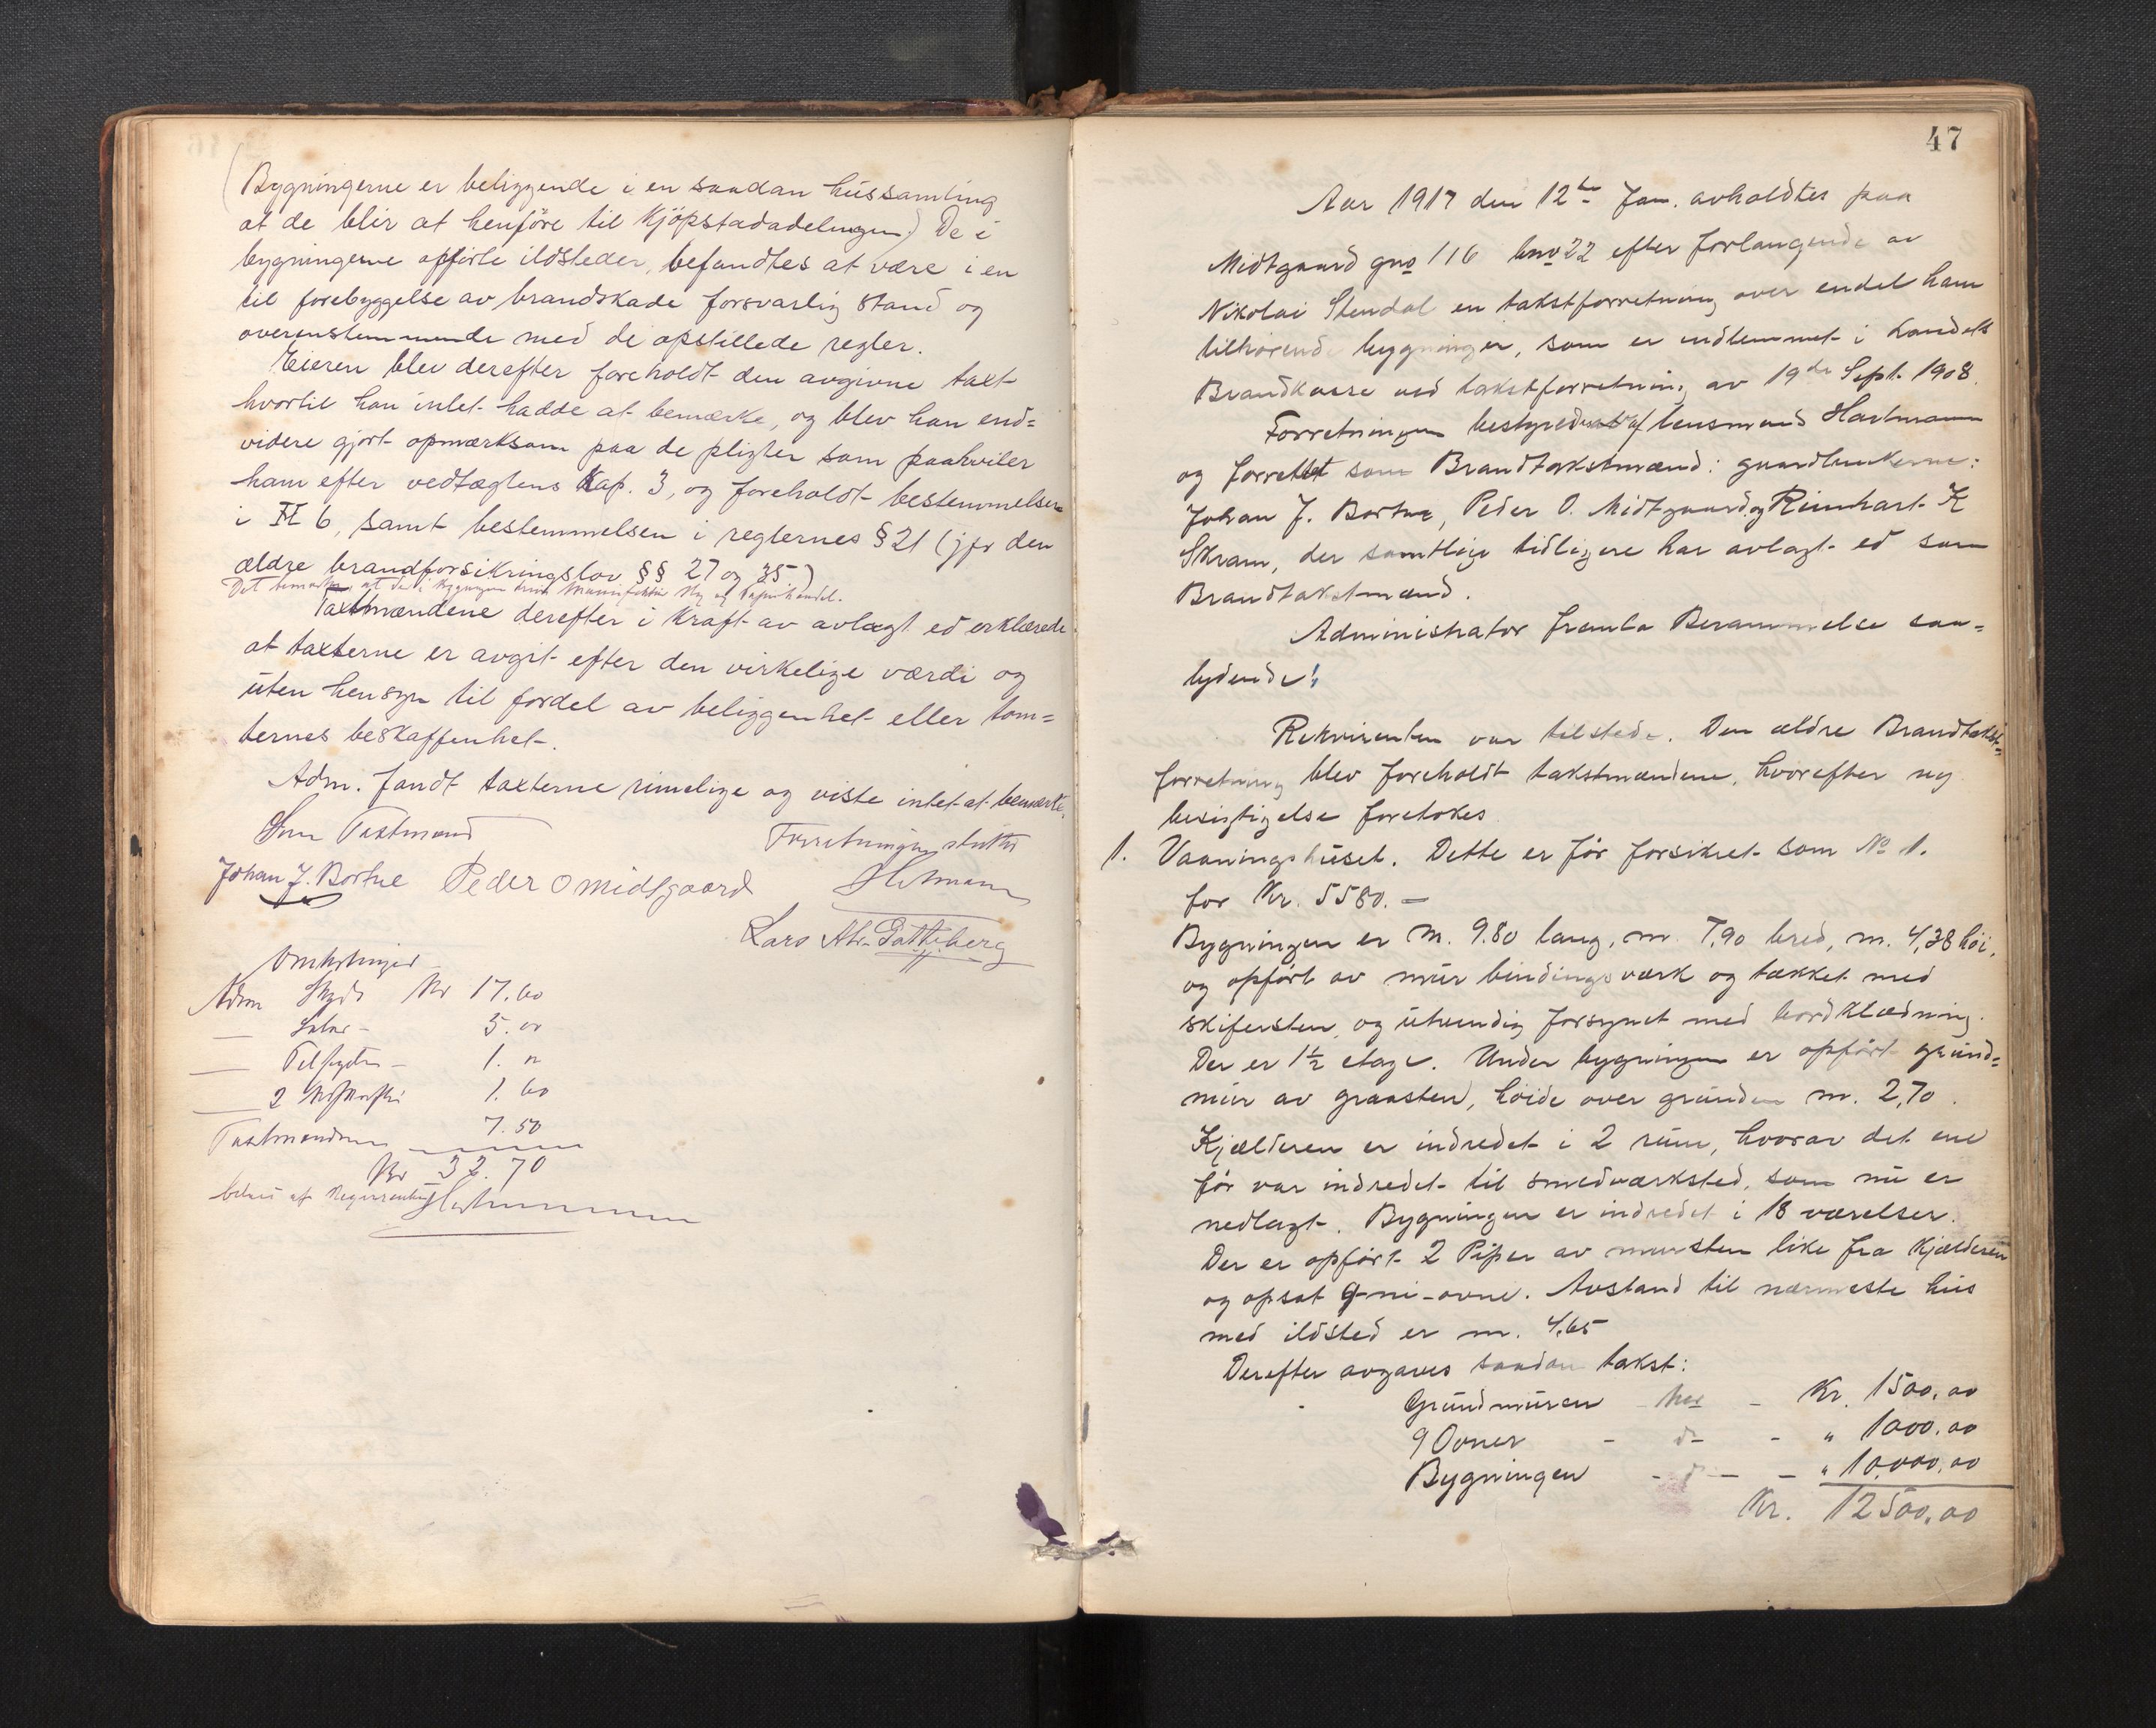 (Bygningerne er beliggende i en saadan hussamling
at de blir at henføre til Kjöpstadadelingen.) De i
bygningerne opförte ildsteder, befandtes at være i en
til forebyggelse av brandskade forsvarlig stand og
overenstemmende med de opstillede regler.
Eieren blev derefter foreholdt den avgivne taxt
hvortil han intet hadde at bemærke, og blev han end=
videre gjort opmærksom paa de pligter som paahviler
ham efter vedtægtens Kap. 3, og foreholdt bestemmelsen
i § 6, samt bestemmelsen i reglernes § 21 (jfr den
ældre brandforsikringslov §§ 27 og 35.)
Det bemærkes at der i bygningen drives Manufaktur og Papirhandel.
Taxtmændene derefter i Kraft av avlagt ed erklærede
at taxterne er avgit efter den virkelige værdi og
uten hensyn til fordel av beliggenhet eller tom=
ternes beskaffenhet.
Adm. fandt taxterne rimelige og viste intet at bemærke.
Som Taxtmænd Forretningen sluttet
Johan J. Bortne Peder O Midtgaard Hartmann
Lars Gotteberg
Omkostninger
Adm Skyds Kr 17.60
— Salar - 5.00
— 1. "
— 2 1.60
Taxtmændene 7.50
Kr 32.70
betalt af Requirenten Hartmann
47
Aar 1917 den 12te Jan. avholdtes paa
Midtgaard gno 116 bno 22 efter forlangende av
Nikolai Stendal en takstforretning over endel ham
tilhørende bygninger, som er indlemmet i Landets
Brandkasse ved takstforretning av 19de Sept. 1908.
Forretningen bestyredes af lensmand Hartmann
og forrettet som Brandtakstmænd: gaardbrukerne:
Johan J. Bortne, Peder O. Midtgaard og Reinhart K
Skram, der samtlige tidligere har avlagt ed som
Brandtakstmænd.
Administrator fremla Berammelse saa=
lydende!
Rekvirenten var tilstede. Den ældre Brandtakst=
forretning blev foreholdt takstmændene, hvorefter ny
besigtigelse foretokes
1. Vaaningshuset. Dette er før forsikret som No 1.
for Kr. 5580.—
Bygningen er M. 9.80 lang, m. 7,90 bred, m. 4,38 høi,
og opført av mur bindingsværk og tækket med
skifersten og utvendig forsynet med bordklædning.
Der er 1½ etage. Under bygningen er opført grund=
mur av graasten, høide over grunden m. 2,70.
Kjælderen er indredet i 2 rum, hvorav det ene
før var indredet til smedværksted, som nu er
nedlagt. Bygningen er indredet i 18 værelser.
Der er opført 2 Piper av mursten like fra Kjælderen
og opsat 9-ni-ovne. Avstand til nærmeste hus
med ildsted er m. 4.65
Derefter avgaves saadan takst:
Grundmuren - Kr. 1500.00
9 Ovner - do - " 1000.00
Bygningen - d— — " 10,000.00
Kr. 12500.00